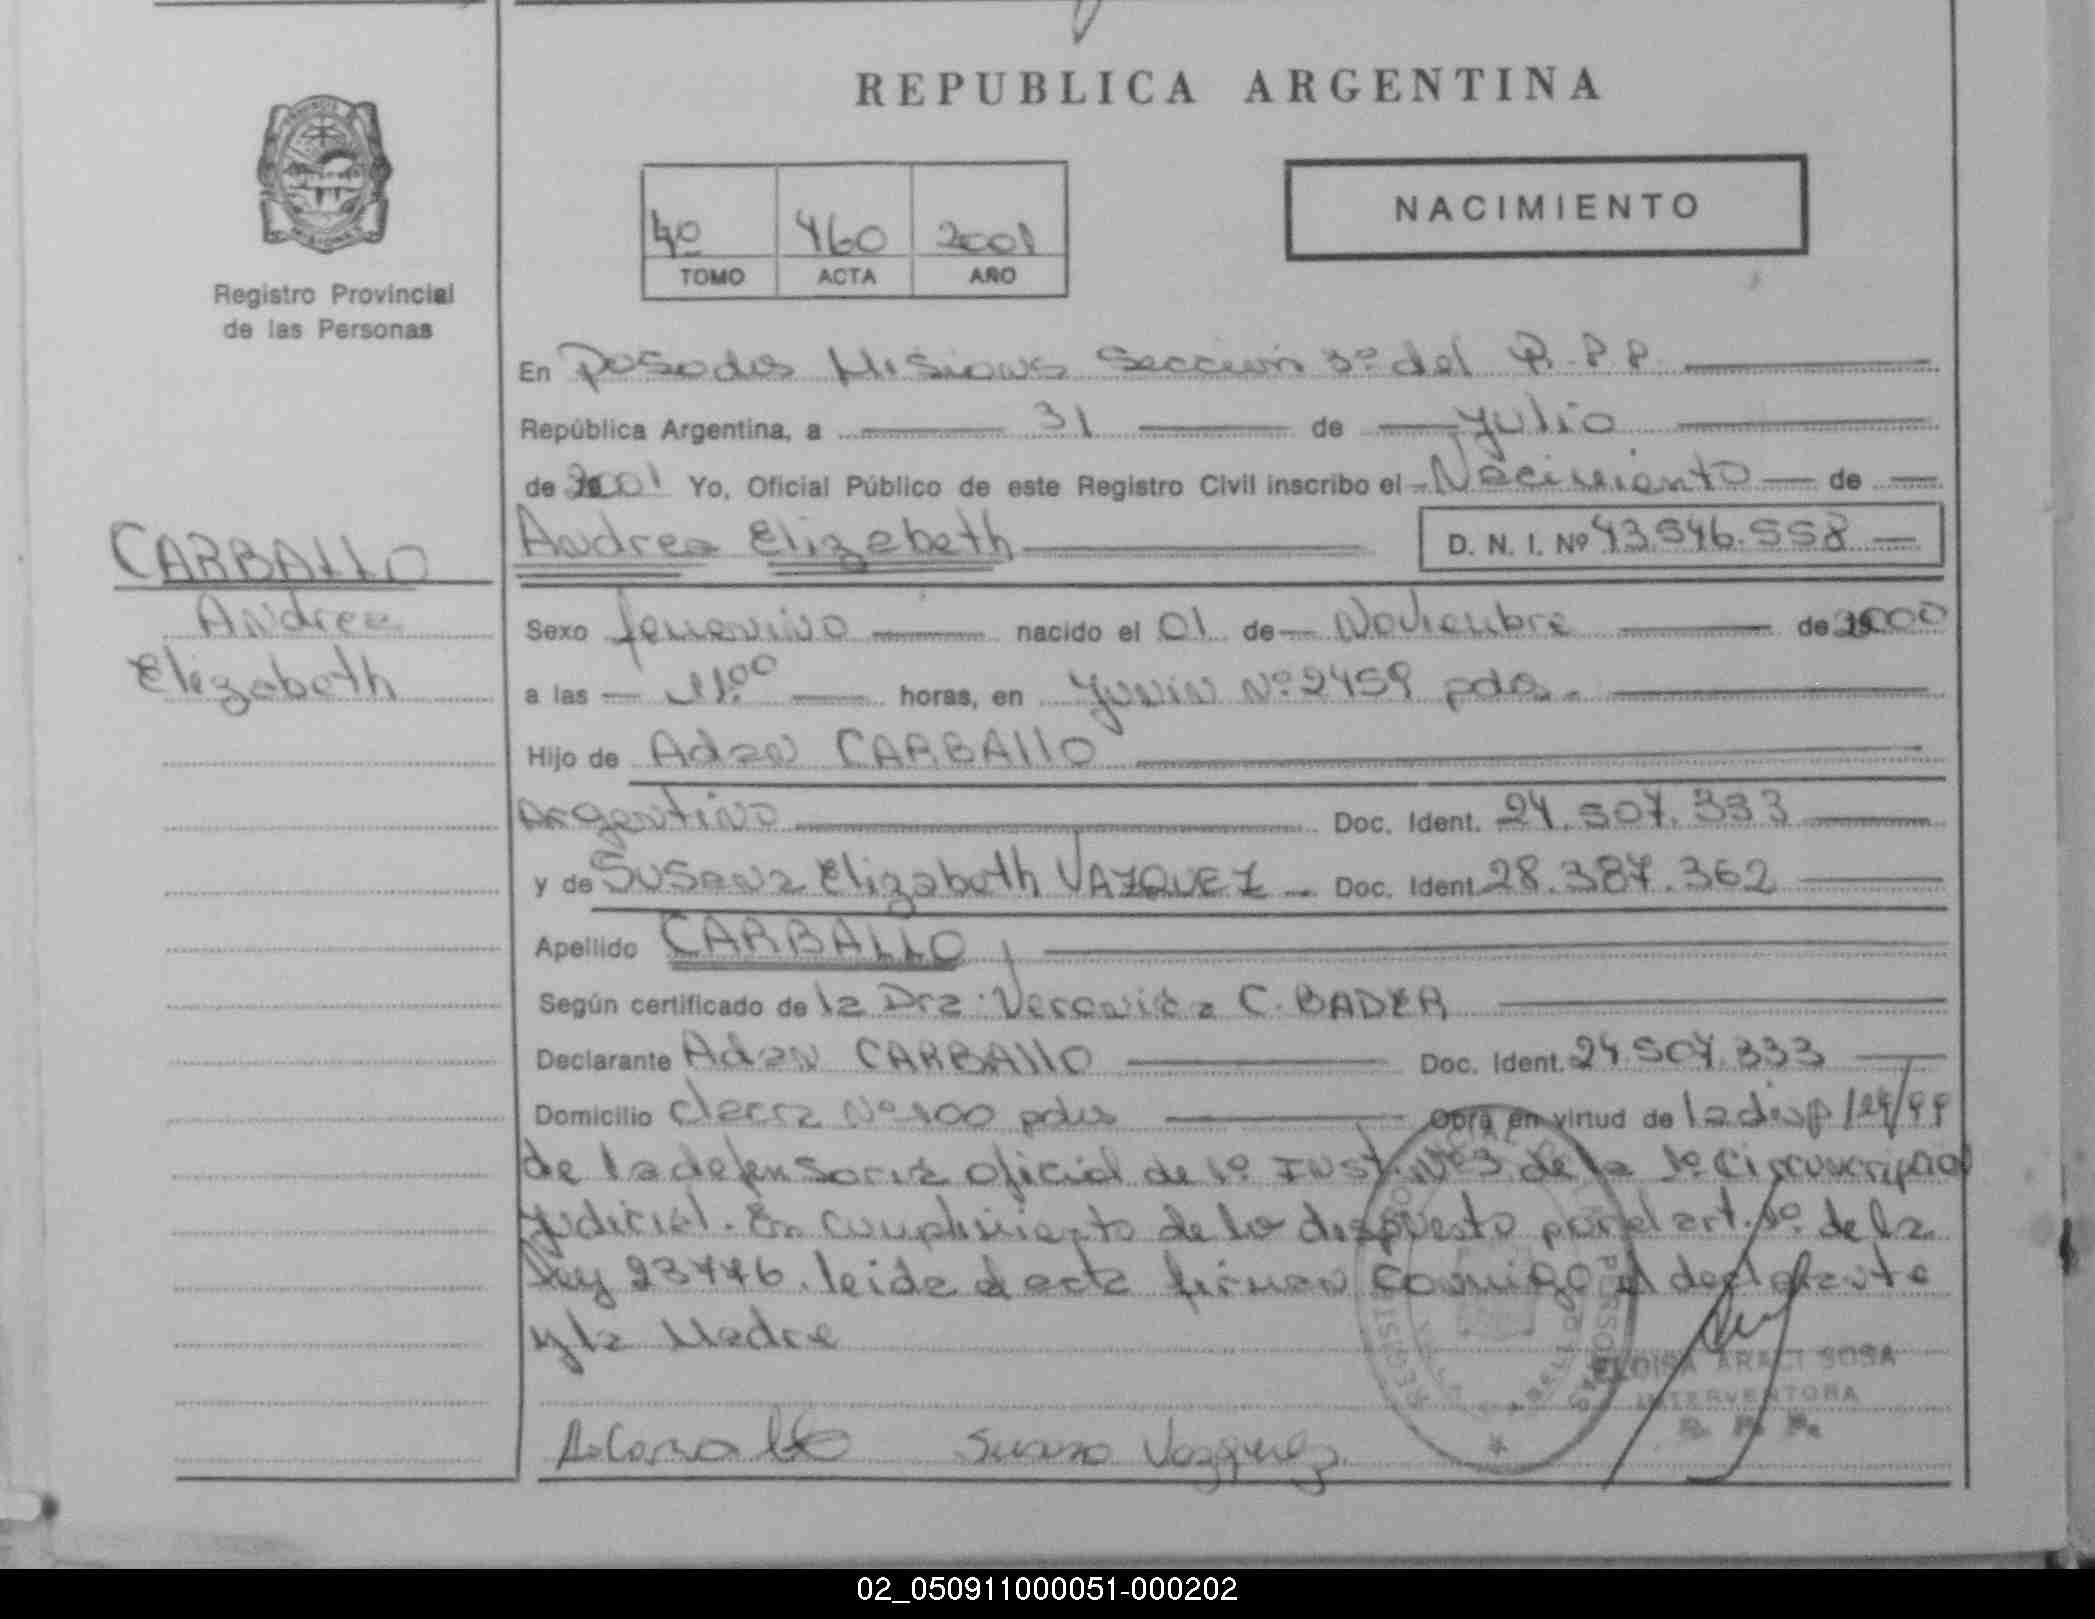 REPUBLICA ARGENTINA
NACIMIENTO
4º 460 2001
TOMO ACTA AÑO
Registro Provincial
de las Personas
En Posadas Misiones Seccion 3º del R.P.P.
República Argentina, a 31 de Julio
de 2001 Yo, Oficial Público de este Registro Civil inscribo el Nacimiento de
Andrea Elizabeth D. N. I. Nº 43.546.558
CARBALLO
Andrea
Elizabeth
Sexo femenino nacido el 01 de Noviembre de 2000
a las 11:00 horas, en Junin Nº 2459 pdas.
Hijo de Adan CARBALLO
Argentino Doc. Ident. 24.507.333
y de Susana Elizabeth VAZQUEZ Doc. Ident. 28.387.362
Apellido CARBALLO
Según certificado de la Dra. Veronica C. BADER
Declarante Adan CARBALLO Doc. Ident. 24.507.333
Domicilio Nº 100 pdas Obra en virtud de la disp 124/99
de la defensoria oficial de 1º Inst. Nº 3 de la 1º Circunscripcion
Judicial. En cumplimiento de lo dispuesto por el art. de la
Ley 23776. leida el acta firman conmigo el declarante
y la Madre
ELOISA ARACI SOSA
INTERVENTORA
R. P. P.
Susana Vazquez
02_050911000051-000202